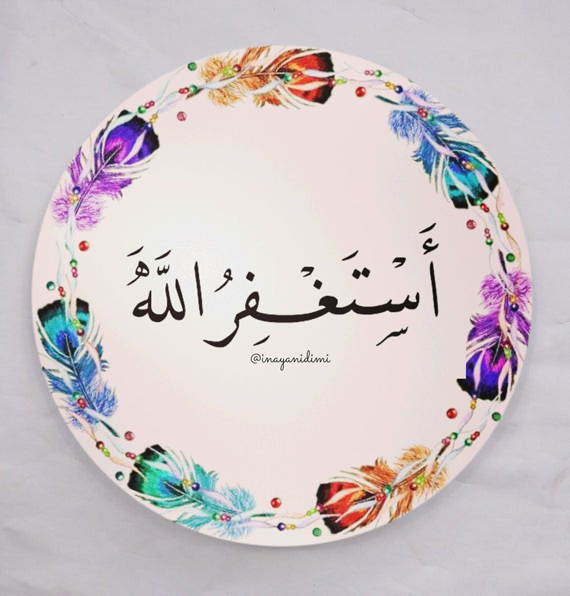 أَسْتَغْفِرُ اللَّهَ
@inayanidimi